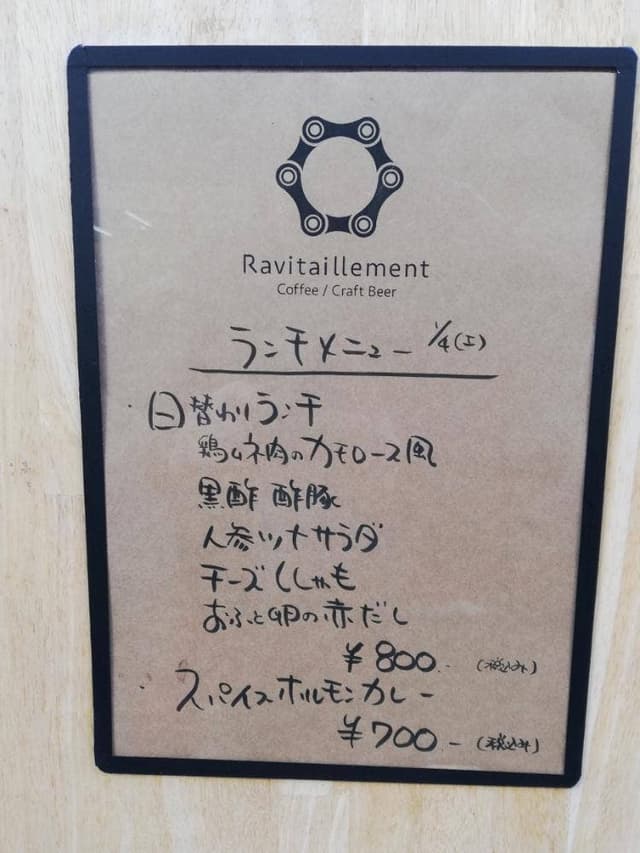 Ravitaillement
Coffee / Craft Beer
ランチメニュー 1/4(土)
・日替わりランチ
鶏ムネ肉のカモロース風
黒酢 酢豚
人参ツナサラダ
チーズししゃも
おふと卵の赤だし
¥800.- (税込み)
・スパイスホルモンカレー
¥700- (税込み)